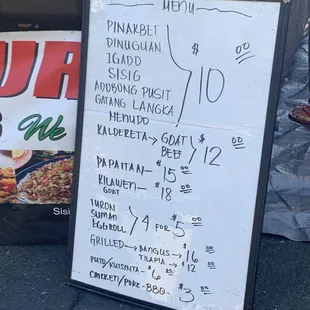 MENU
PINAKBET
DINUGUAN
IGADO
SISIG
ADOBONG PUSIT
GATANG LANGKA
MENUDO
$10.00
KALDERETA → GOAT
BEEF
$12.00
PAPAITAN — $15.00
KILAWEN — $18.00
GOAT
TURON
SUMAN
EGGROLL
4 FOR $5.00
GRILLED → BANGUS → $16.00
TILAPIA → $12.00
PUTO/KUTSINTA — $6.00
CHICKEN/PORK - BBQ — $3.00
UR
We
Sisi